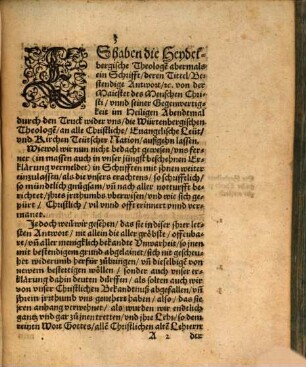 3
ES haben die Heydel-
bergische Theologē abermals
ein Schrifft/ deren Tittel/ Be-
stendige Antwort/ ꝛc. von der
Maiestet des Menschen Chri-
sti/ vnnd seiner Gegenwertig-
keit im Heiligen Abendmal
durch den Truck wider vns/ die Würtenbergischen
Theologē/ an alle Christliche/ Euangelische Leüt/
vnd Kirchen Teütscher Nation/ außgehn lassen.
Wiewol wir nun nicht bedacht gewesen/ vns fer-
ner (in massen auch in vnser jüngst beschehnen Er-
klärung vermeldet) in Schrifften mit ihnen weiter
einzulassen/ als die vnsers erachtens/ so schrifftlich/
so mündelich gnůgsam/ vñ nach aller notturfft be-
richtet/ ihres jrrthumbs vberwisen/ vnd wie sich ge-
pürt/ Christlich/ vil vnnd offt erinnert vnd ver-
manet.
Jedoch weil wir gesehen/ das sie in diser ihrer letz-
sten Antwort/ nit allein die alten blosse/ offenba-
re/ vñ aller menigklich bekandte Vnwarheit/ so jnen
mit bestendigem grund abgelainet/ sich nit gescheu-
het widerumb herfür zůbringen/ vñ dieselbigē von
newem bestettigen wöllen/ sonder auch vnser er-
klärung dahin deuten dörffen/ als solten auch wir
von vnser Christlichen Bekandtnuß abgefallen/ vñ
jhrem jrrthumb vns genehert haben/ also/ das sie
jren anhang verwehnet/ als wurden wir endtlich
gantz vnd gar zů jnen tretten/ vnd jhre Lehr/ so dem
reinen Wort Gottes/ allē Christlichen altē Lehrern
A 2 der